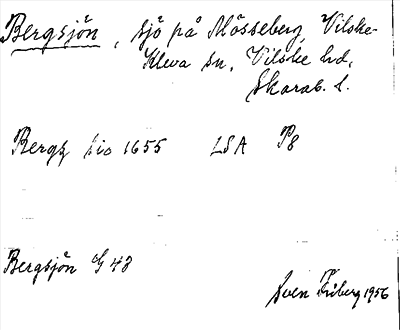 Bergsjön, sjö på Mösseberg, Vilske-
Kleva sn, Vilske hd,
Skarab. l.
Bergz sio 1655 LSA P8
Bergsjön G 48
Sven Friberg 1956